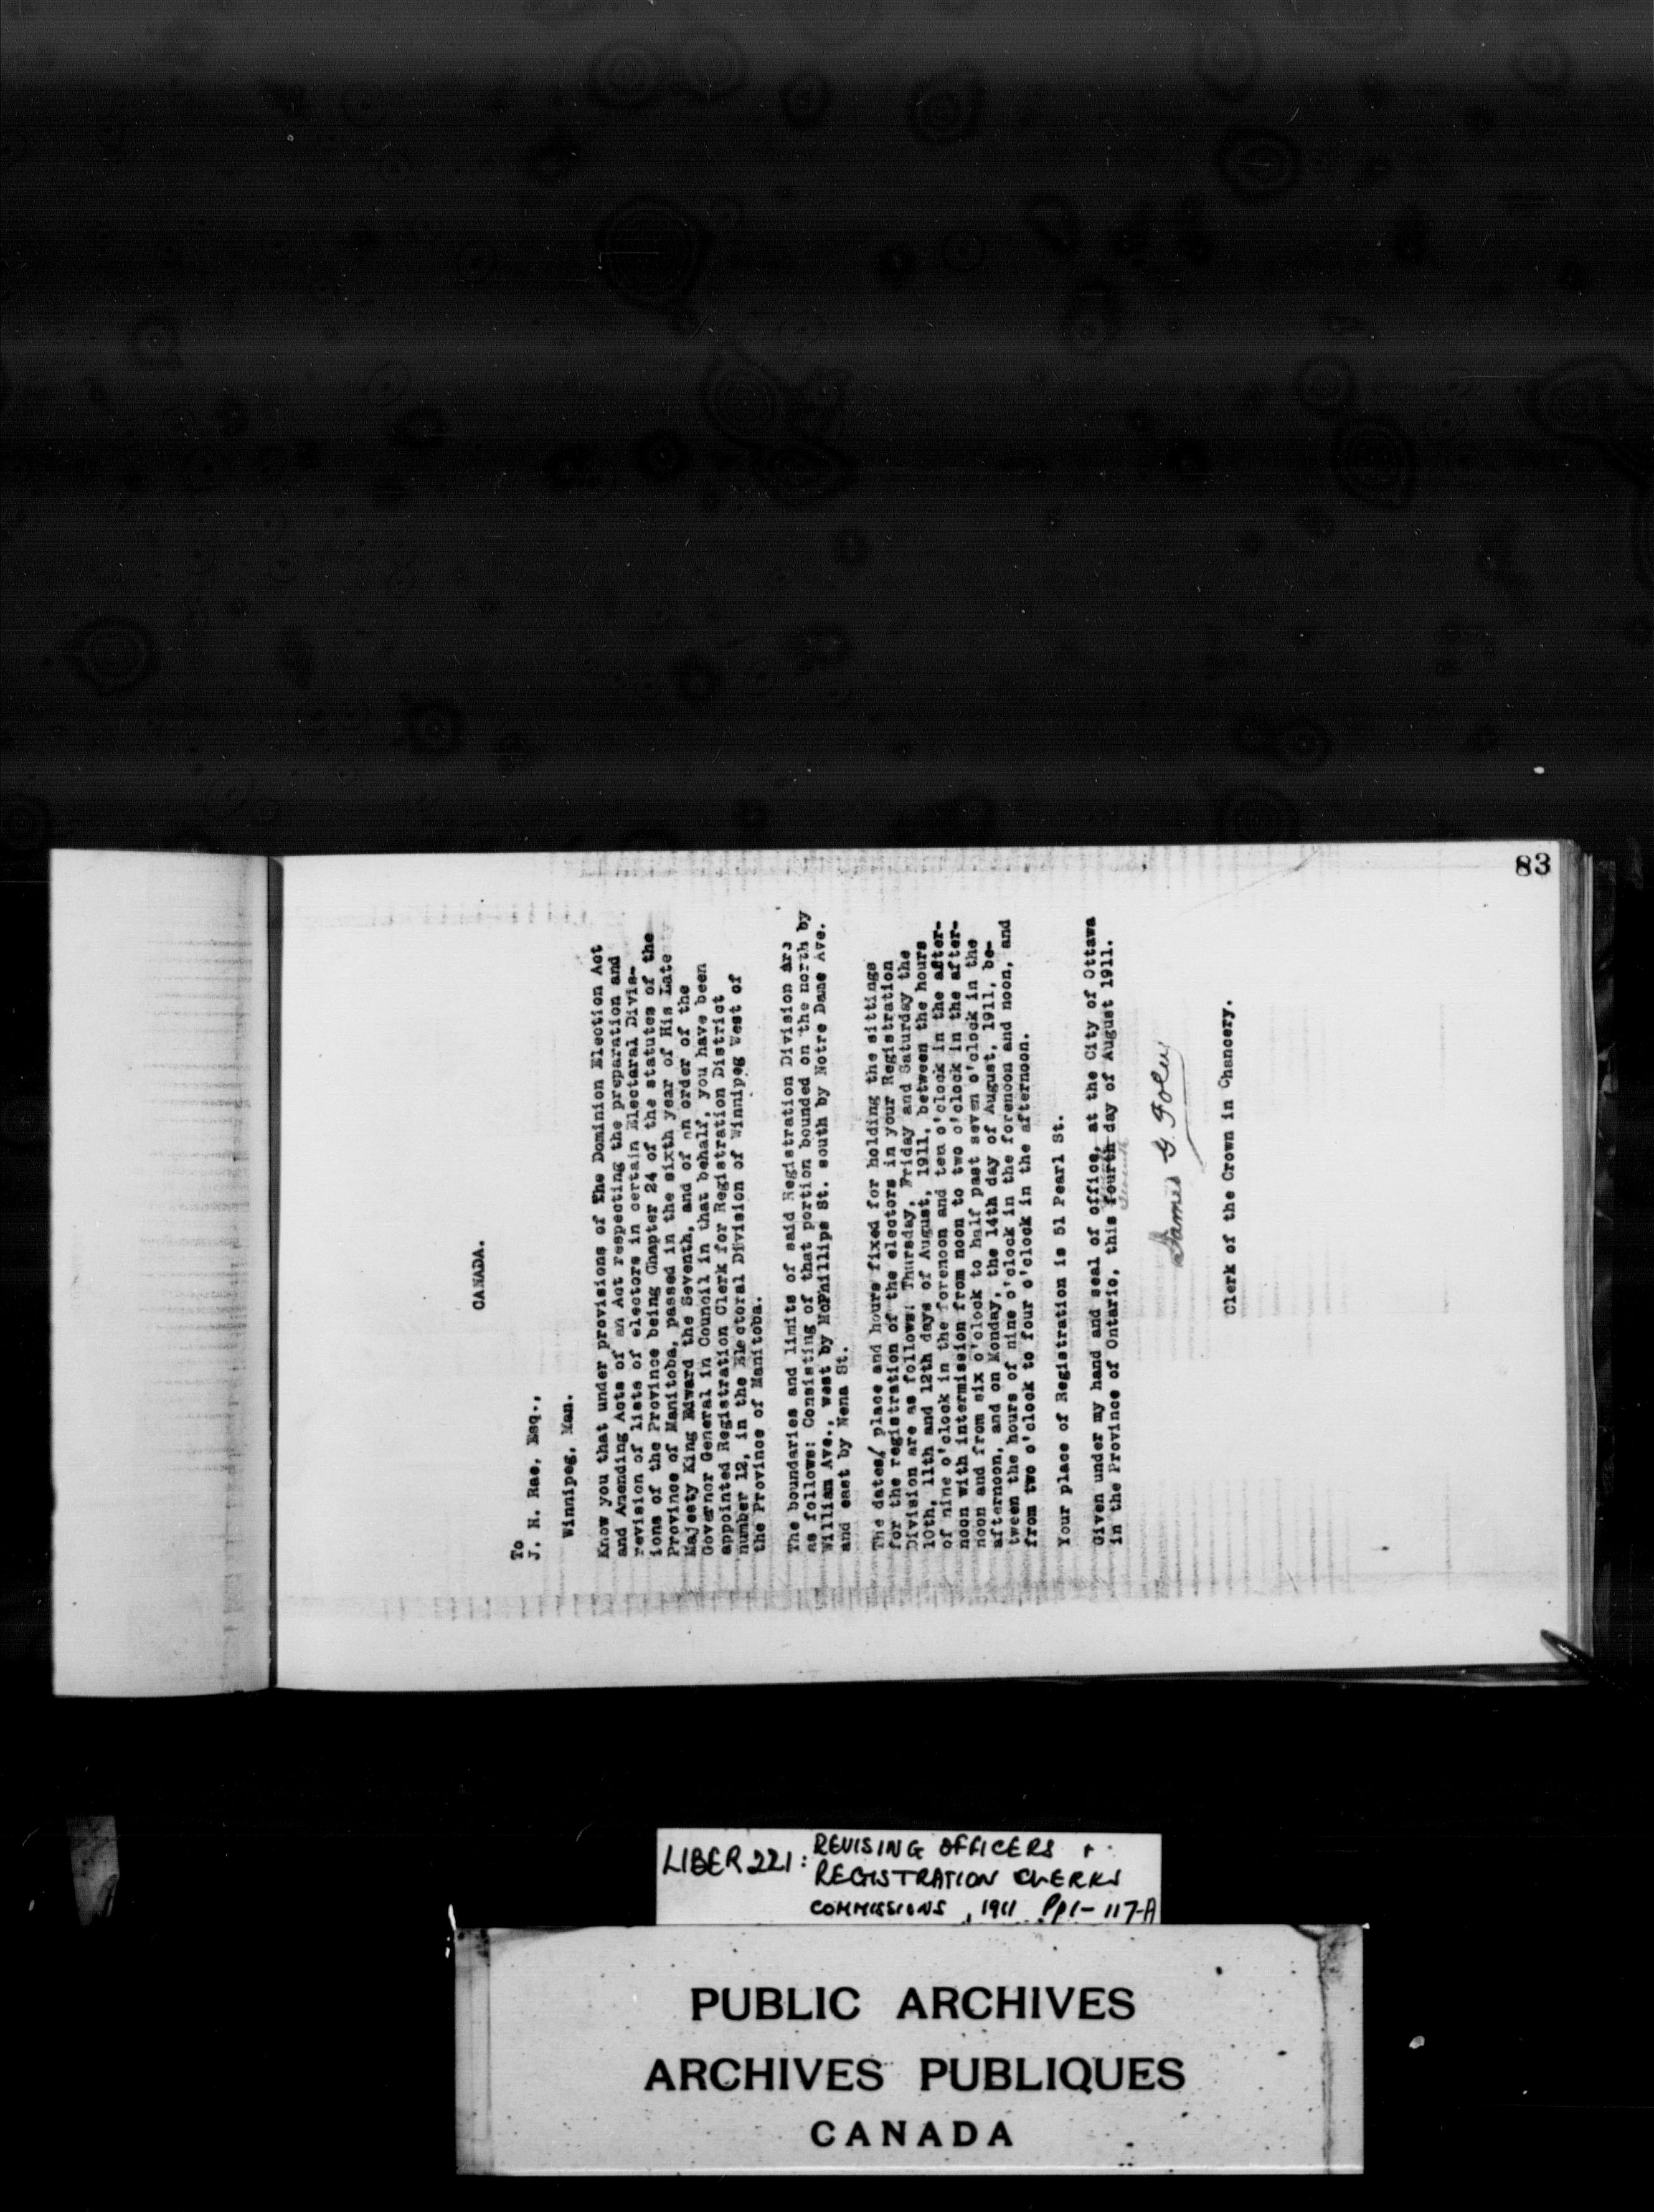 83
CANADA.
To
J. H. Rae, Esq.,
Winnipeg, Man.
Know you that under provisions of The Dominion Election Act
and Amending Acts of an Act respecting the preparation and
revision of lists of electors in certain Electaral Divis-
ions of the Province being Chapter 24 of the statutes of the
Province of Manitoba, passed in the sixth year of His Late
Majesty King Edward the Seventh, and of an order of the
Governor General in Council in that behalf, you have been
appointed Registration Clerk for Registration District
number 12, in the Electoral Division of Winnipeg West of
the Province of Manitoba.
The boundaries and limits of said Registration Division are
as follows: Consisting of that portion bounded on the north by
William Ave., west by McPhillips St. south by Notre Dame Ave.
and east by Nena St.
The dates, place and hours fixed for holding the sittings
for the registration of the electors in your Registration
Division are as follows: Thursday, Friday and Saturday the
10th, 11th and 12th days of August, 1911, between the hours
of nine o'clock in the forenoon and ten o'clock in the after-
noon with intermission from noon to two o'clock in the after-
noon and from six o'clock to half past seven o'clock in the
afternoon, and on Monday, the 14th day of August, 1911, be-
tween the hours of nine o'clock in the forenoon and noon, and
from two o'clock to four o'clock in the afternoon.
Your place of Registration is 51 Pearl St.
Given under my hand and seal of office, at the City of Ottawa
in the Province of Ontario, this fourth day of August 1911.
James G. Foley
Clerk of the Crown in Chancery.
LIBER 221: REVISING OFFICERS +
REGISTRATION CLERKS
COMMISSIONS, 1911 Pp1-117-A
PUBLIC ARCHIVES
ARCHIVES PUBLIQUES
CANADA